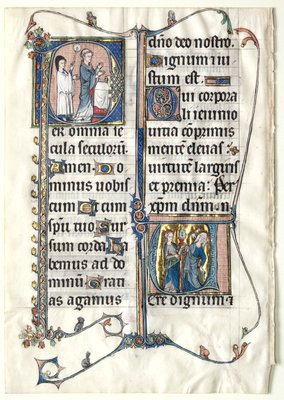 er omnia se
cula seculorū.
Amen. Do
minus uobis
cum. Et cum
spū tuo. Sur
sum corda. ha
bemus ad do
minū. Grati
as agamus
dño deo nostro.
Dignum iu
stum est.
Qui corpora
li ieiunio
uitia comprimis
mentē eleuas:
uirtutē largiris
et premia: Per
xpm dñm n
ere dignum